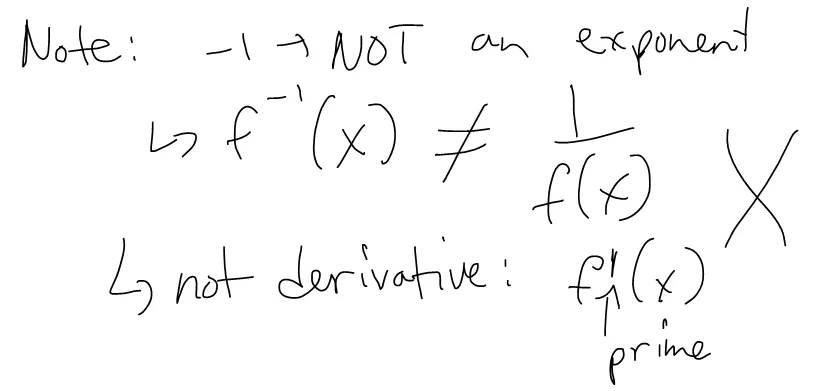 Note: -1 → NOT an exponent
↳ f⁻¹(x) ≠ 1/f(x) X
↳ not derivative: f'(x)
prime